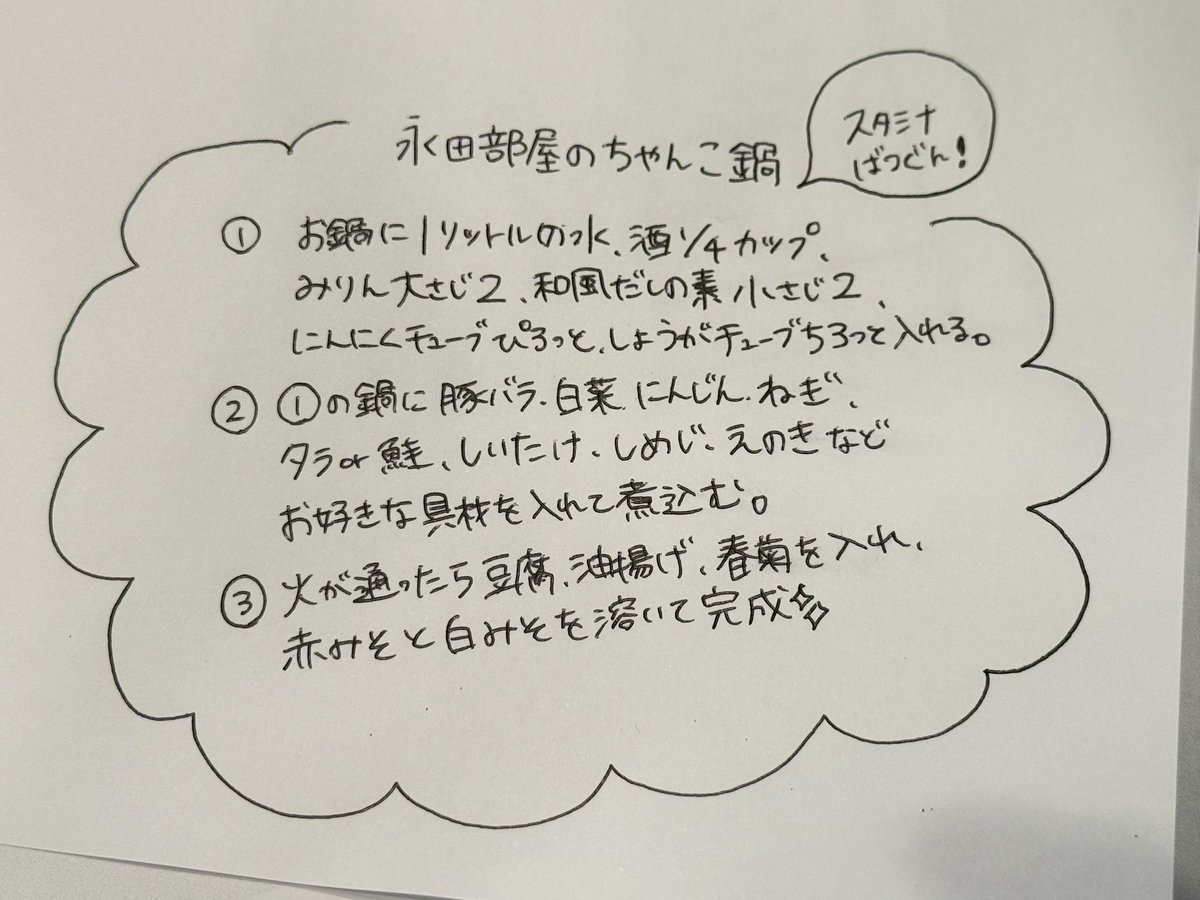 永田部屋のちゃんこ鍋
スタミナ
ばつぐん!
① お鍋に1リットルの水、酒1/4カップ、
みりん大さじ2、和風だしの素 小さじ2、
にんにくチューブぴろっと、しょうがチューブちろっと入れる。
② ①の鍋に豚バラ、白菜、にんじん、ねぎ、
タラor鮭、しいたけ、しめじ、えのきなど
お好きな具材を入れて煮込む。
③ 火が通ったら豆腐、油揚げ、春菊を入れ、
赤みそと白みそを溶いて完成